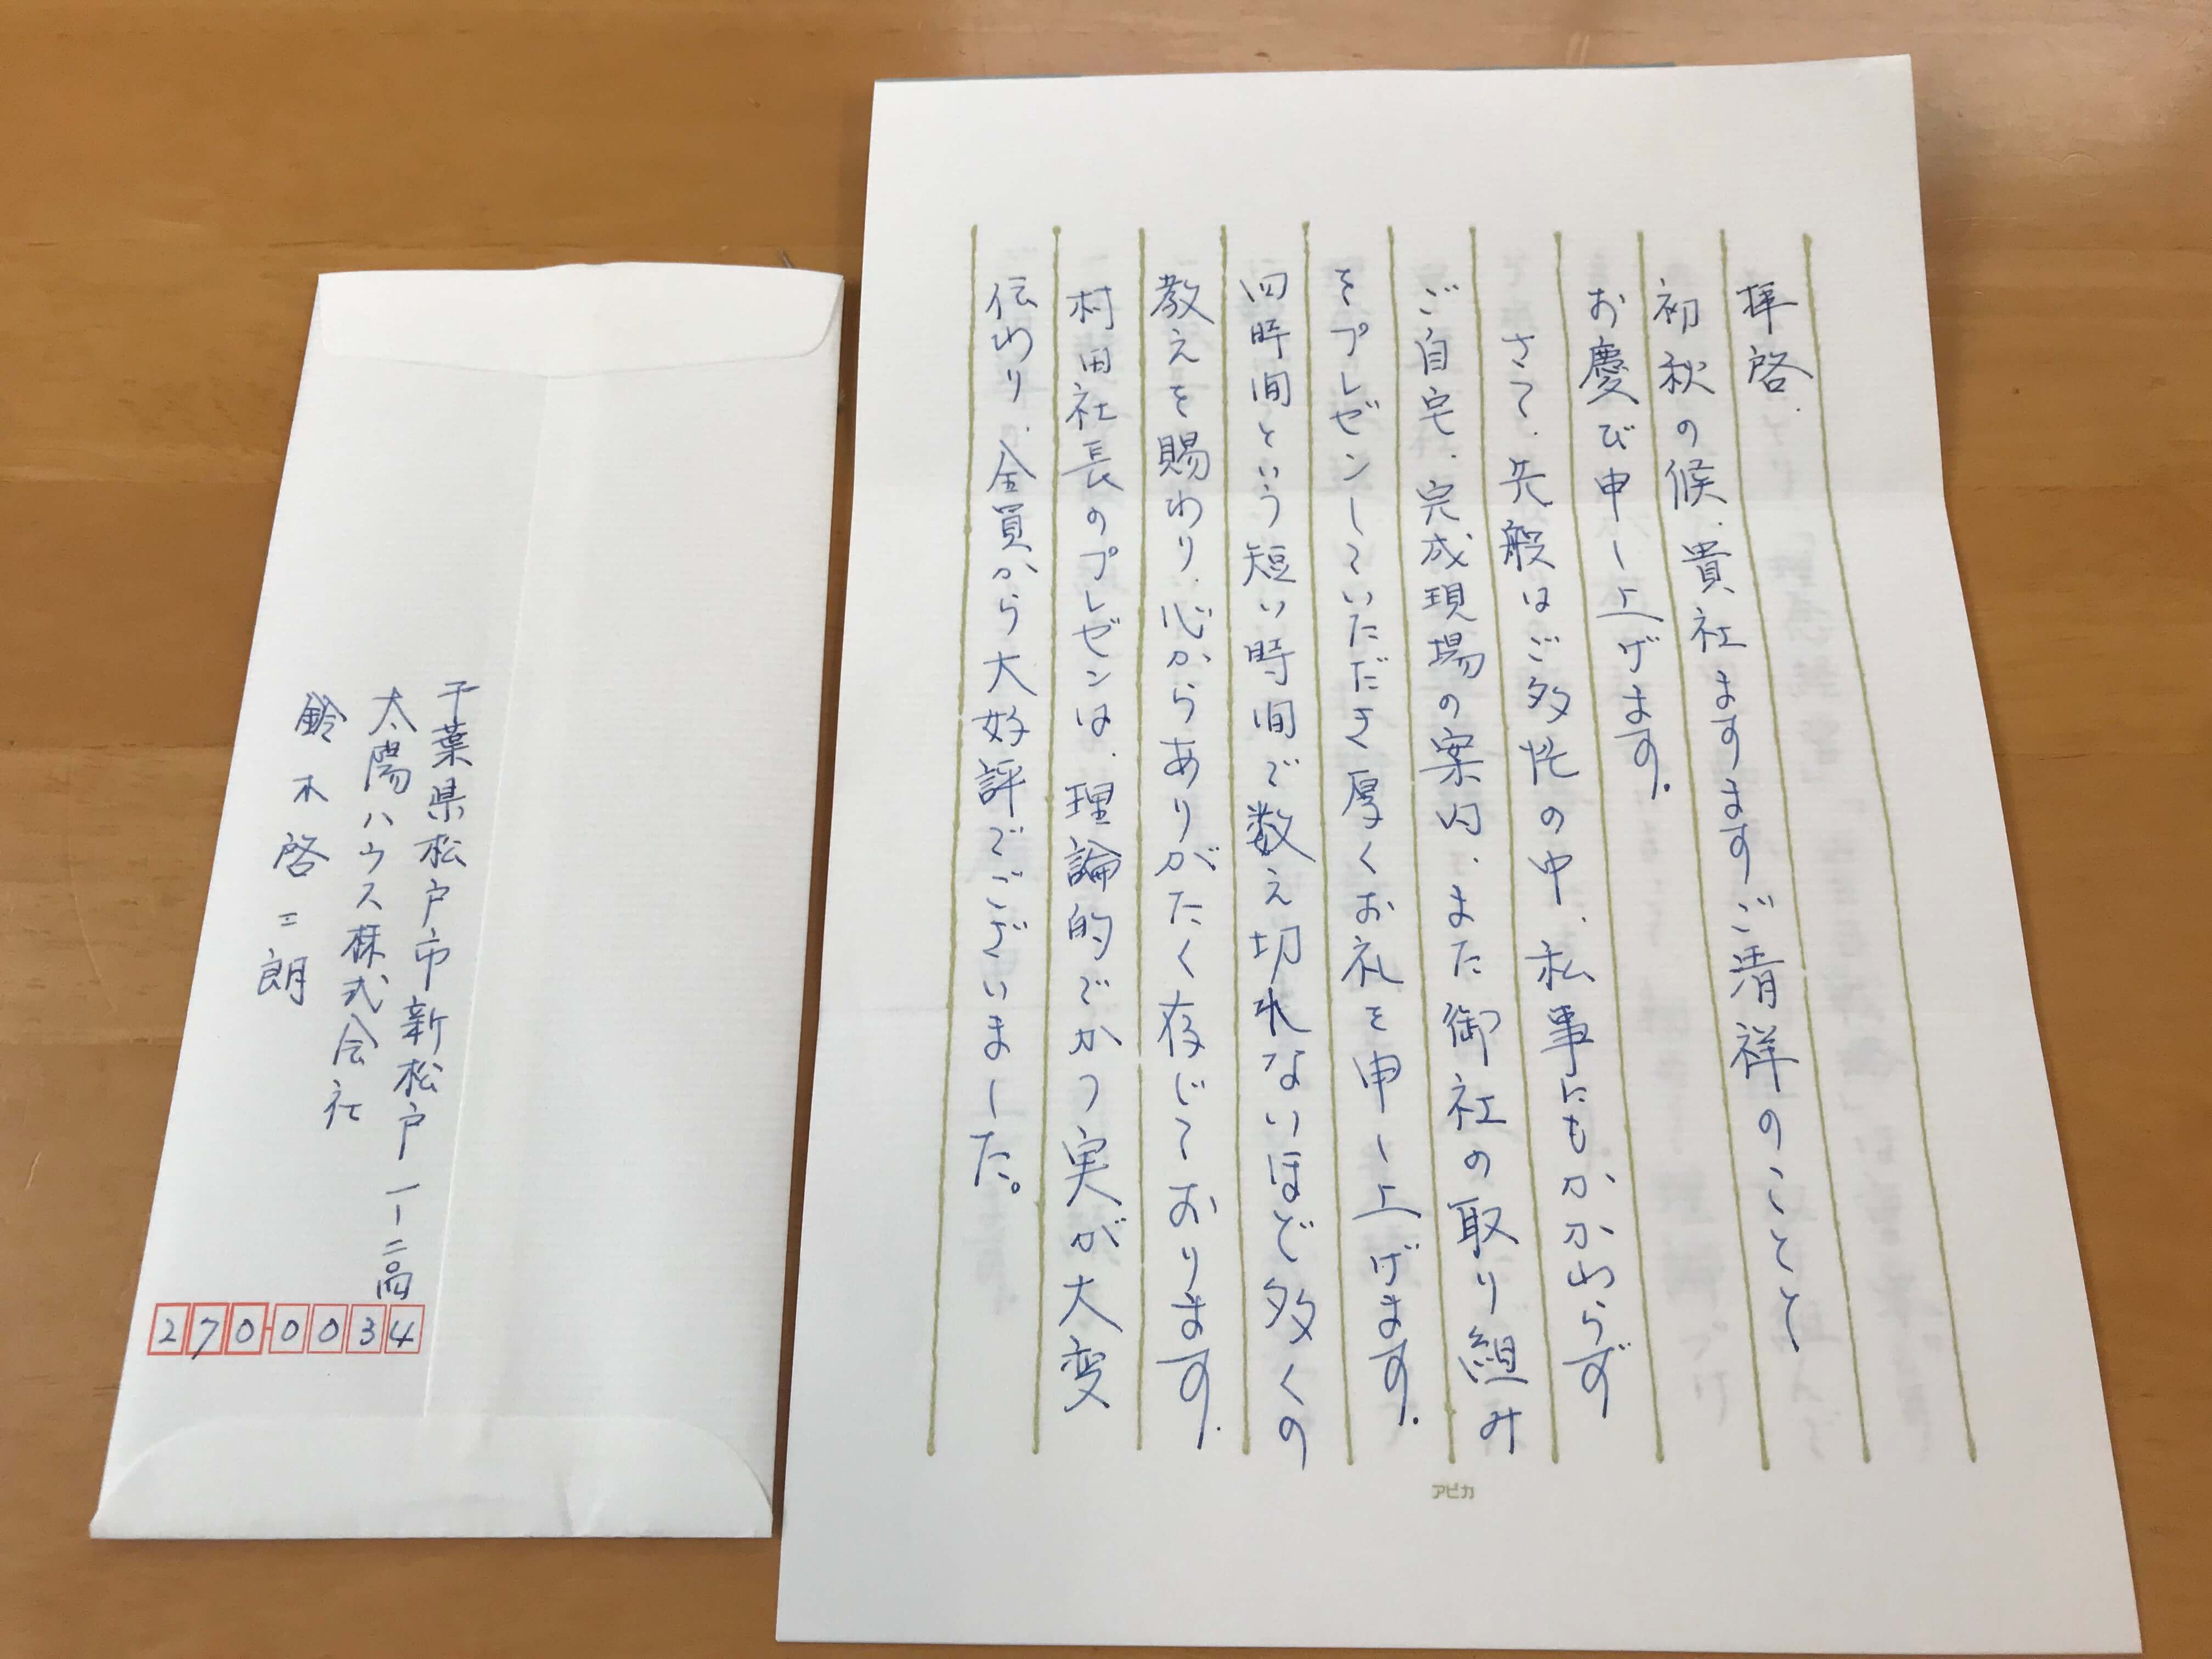 拝啓、
初秋の候、貴社ますますご清祥のことと
お慶び申し上げます。
さて、先般はご多忙の中、私事にもかかわらず
ご自宅、完成現場の案内、また御社の取り組み
をプレゼンしていただき厚くお礼を申し上げます。
四時間という短い時間で数え切れないほど多くの
教えを賜わり、心からありがたく存じております。
村田社長のプレゼンは、理論的でかつ実が大変
伝わり、全員から大好評でございました。
アピカ
千葉県松戸市新松戸一ー二高
太陽ハウス株式会社
鈴木啓二朗
270-0034